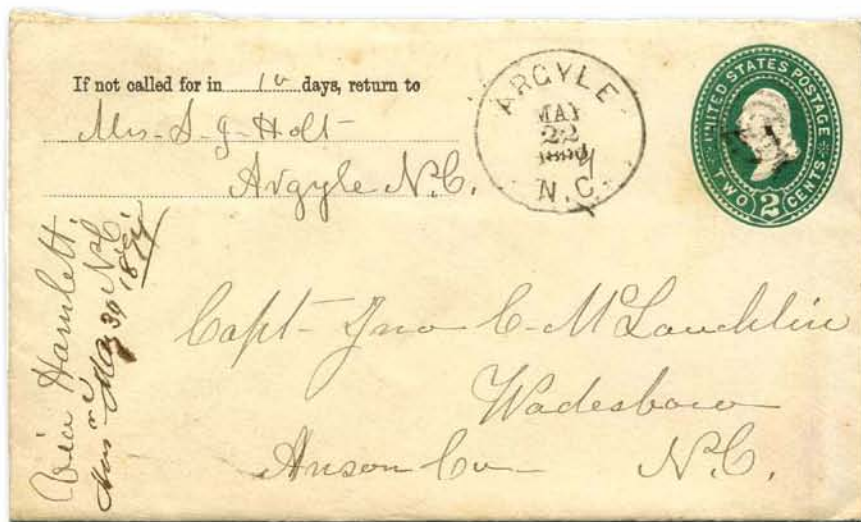 If not called for in 10 days, return to
Mrs. S. J. Holt
Argyle N.C.
ARGYLE
MAY
22
N.C.
UNITED STATES POSTAGE
TWO 2 CENTS
Capt. Jno C. McLauchlin
Wadesboro
Anson Co. N.C.
Via Hamlett. N.C.
May 30 1894